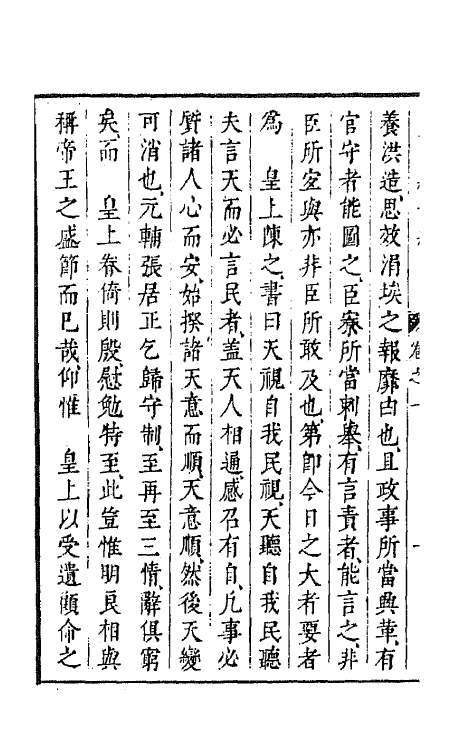 養洪造、思效涓埃之報靡由也、且政事所當興革、有
官守者能圖之、臣寮所當刺舉、有言責者、能言之、非
臣所宜與亦非臣所敢及也、第即今日之大者要者
為　皇上陳之、書曰天視自我民視、天聽自我民聽
夫言天而必言民者、蓋天人相通、感召有自、凡事必
質諸人心而安、始揆諸天意而順、天意順、然後天變
可消也、元輔張居正乞歸守制、至再至三情、辭俱窮
矣、而　皇上眷倚則殷、慰勉特至、此豈惟明良相與
稱帝王之盛節而已哉、仰惟　皇上以受遺顧命之
卷之一